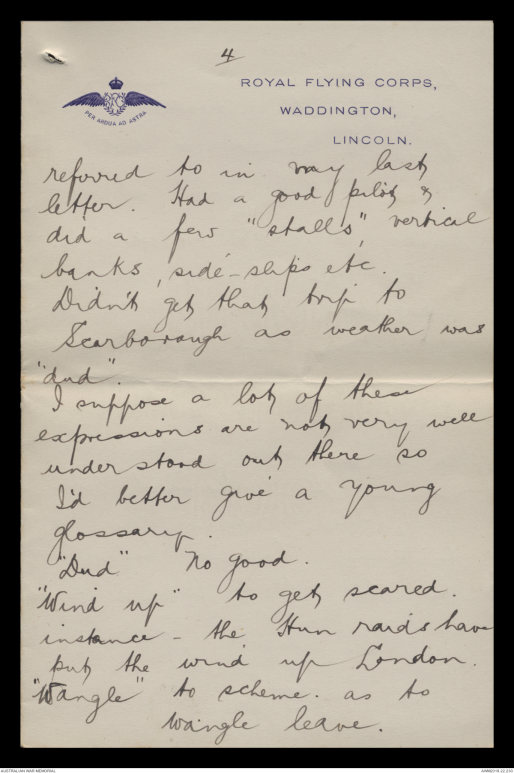 4
ROYAL FLYING CORPS,
WADDINGTON,
LINCOLN.
PER ARDUA AD ASTRA
referred to in my last
letter. Had a good pilot &
did a few "stalls", vertical
banks, side-slips etc.
Didn't get that trip to
Scarborough as weather was
"dud".
I suppose a lot of these
expressions are not very well
understood out there so
I'd better give a young
glossary.
"Dud" No good.
"Wind up" to get scared.
instance - the Hun raids have
put the wind up London.
"Wangle" to scheme. as to
wangle leave.
AUSTRALIAN WAR MEMORIAL